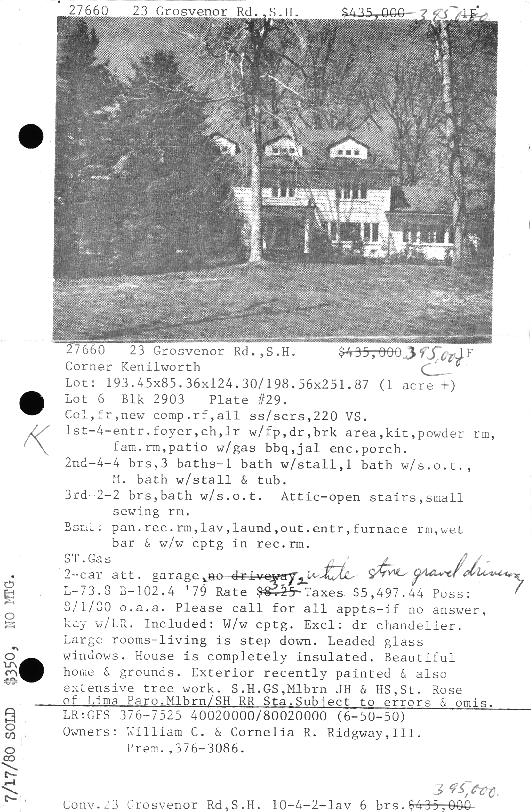 27660 23 Grosvenor Rd.,S.H. $435,000 395,000 1F
27660 23 Grosvenor Rd.,S.H. $435,000 395,000 1F
Corner Kenilworth
Lot: 193.45x85.36x124.30/198.56x251.87 (1 acre +)
Lot 6 Blk 2903 Plate #29.
Col,fr,new comp.rf,all ss/scrs,220 VS.
K
1st-4-entr.foyer,ch,lr w/fp,dr,brk area,kit,powder rm,
fam.rm,patio w/gas bbq,jal enc.porch.
2nd-4-4 brs,3 baths-1 bath w/stall,1 bath w/s.o.t.,
M. bath w/stall & tub.
3rd-2-2 brs,bath w/s.o.t. Attic-open stairs,small
sewing rm.
Bsmt: pan.rec.rm,lav,laund,out.entr,furnace rm,wet
bar & w/w cptg in rec.rm.
ST.Gas
2-car att. garage,no driveway, white stone gravel driveway
3.72
L-73.8 B-102.4 '79 Rate $8.25 Taxes $5,497.44 Poss:
8/1/80 o.a.a. Please call for all appts-if no answer,
key w/LR. Included: W/w cptg. Excl: dr chandelier.
Large rooms-living is step down. Leaded glass
windows. House is completely insulated. Beautiful
home & grounds. Exterior recently painted & also
extensive tree work. S.H.GS,Mlbrn JH & HS,St. Rose
of Lima Paro,Mlbrn/SH RR Sta.Subject to errors & omis.
LR:GFS 376-7525 40020000/80020000 (6-50-50)
Owners: William C. & Cornelia R. Ridgway,III.
Prem.,376-3086.
395,000.
Conv.23 Grosvenor Rd,S.H. 10-4-2-lav 6 brs.$435,000
7/17/80 SOLD $350, NO MTG.